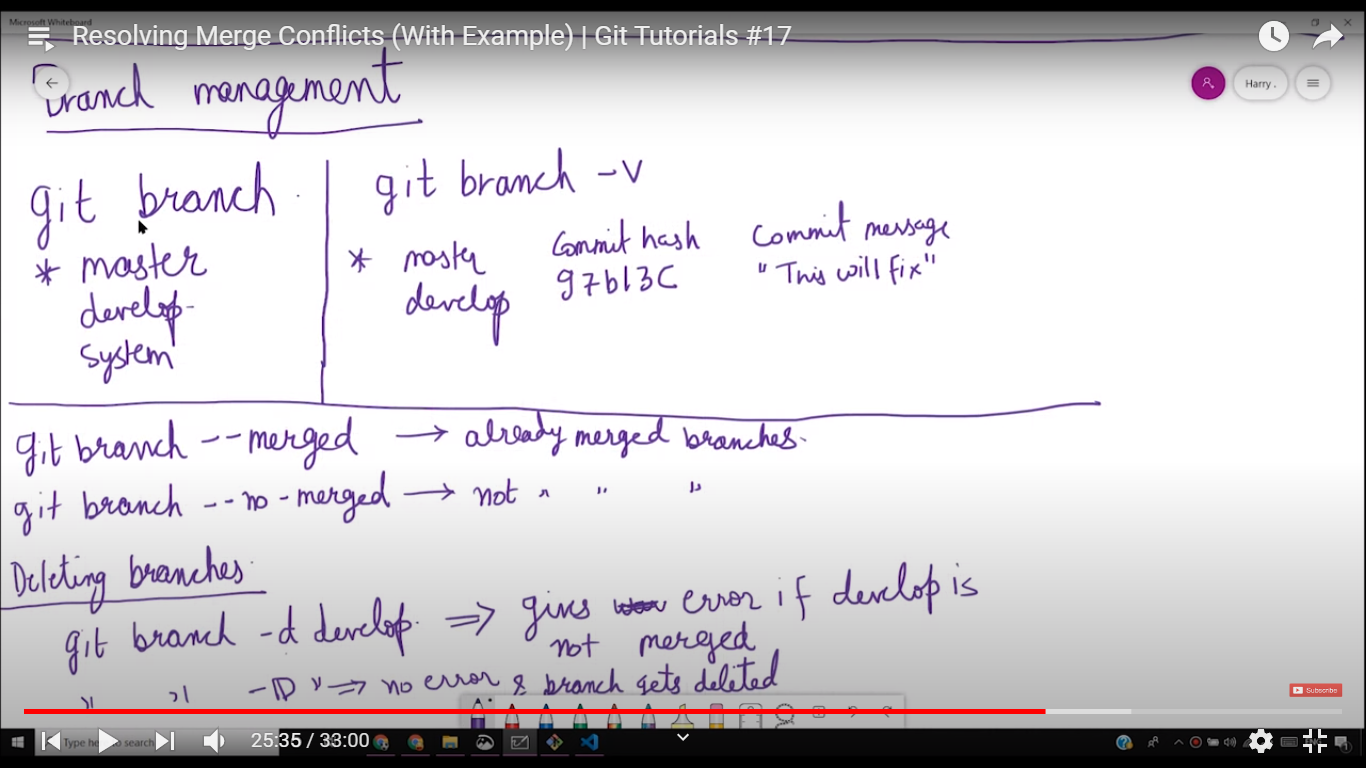 Microsoft Whiteboard
Resolving Merge Conflicts (With Example) | Git Tutorials #17
Branch management
Harry .
git branch
* master
develop
system
git branch -v
* master
develop
Commit hash
97b13C
Commit message
"This will fix"
git branch --merged → already merged branches.
git branch --no-merged → not " " "
Deleting branches.
git branch -d develop. ⇒ gives error if develop is
not merged
" " -D " ⇒ no error & branch gets deleted
Subscribe
25:35 / 33:00
Type here to search